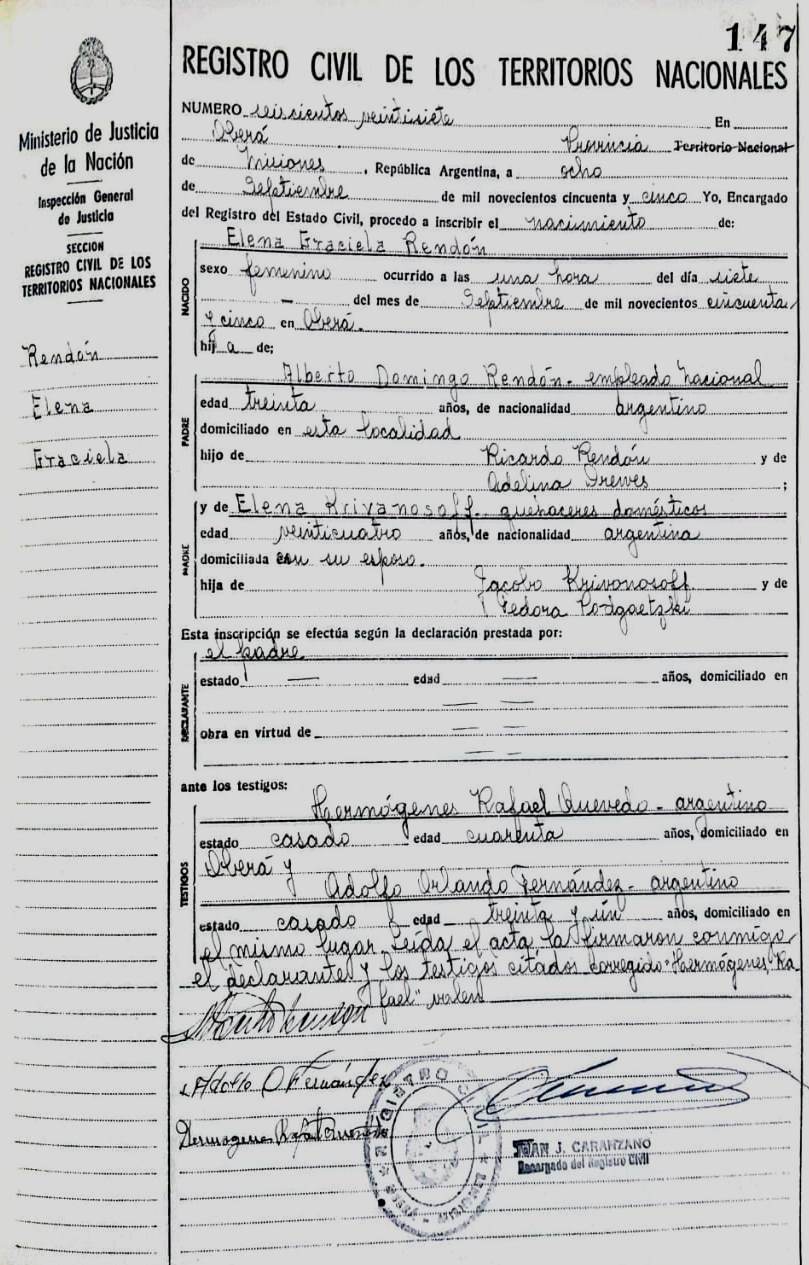 147
Ministerio de Justicia
de la Nación
Inspección General
de Justicia
SECCION
REGISTRO CIVIL DE LOS
TERRITORIOS NACIONALES
Rendón
Elena
Graciela
REGISTRO CIVIL DE LOS TERRITORIOS NACIONALES
NUMERO seiscientos veintisiete En
Oberá Provincia Territorio Nacional
de Misiones, República Argentina, a ocho
de Septiembre de mil novecientos cincuenta y cinco Yo, Encargado
del Registro del Estado Civil, procedo a inscribir el nacimiento de:
NACIDO
Elena Graciela Rendón
sexo femenino ocurrido a las una hora del día siete
— del mes de Septiembre de mil novecientos cincuenta
y cinco en Oberá.
hij a de;
PADRE
Alberto Domingo Rendón - empleado nacional
edad treinta años, de nacionalidad argentino
domiciliado en esta localidad
hijo de Ricardo Rendón y de
Adelina Drewes ;
MADRE
y de Elena Krivanosoff - quehaceres domésticos
edad veinticuatro años, de nacionalidad argentina
domiciliada con su esposo.
hija de Jacobo Krivonosoff y de
Fedora Podgaetzki
Esta inscripción se efectúa según la declaración prestada por:
DECLARANTE
el padre
estado — edad — años, domiciliado en
— —
obra en virtud de — —
— —
ante los testigos:
TESTIGOS
Hermógenes Rafael Quevedo - argentino
estado casado edad cuarenta años, domiciliado en
Oberá y
Adolfo Orlando Fernández - argentino
estado casado edad treinta y un años, domiciliado en
el mismo lugar. Leída el acta la firmaron conmigo
el declarante y los testigos citados corregido "Hermógenes, Ra
fael" valen
Adolfo O Fernández
Hermogenes Rafael Quevedo
REGISTRO CIVIL
OBERA - MISIONES
JUAN J. CARANZANO
Encargado del Registro Civil